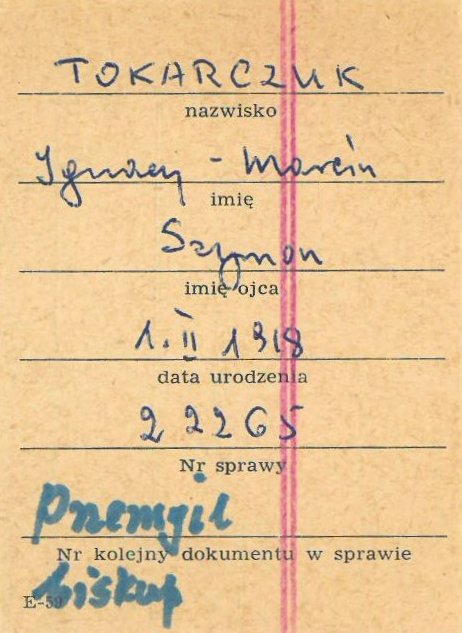 TOKARCZUK
nazwisko
Ignacy - Marcin
imię
Szymon
imię ojca
1. II 1918
data urodzenia
22265
Nr sprawy
Przemyśl
Nr kolejny dokumentu w sprawie
biskup
E-59